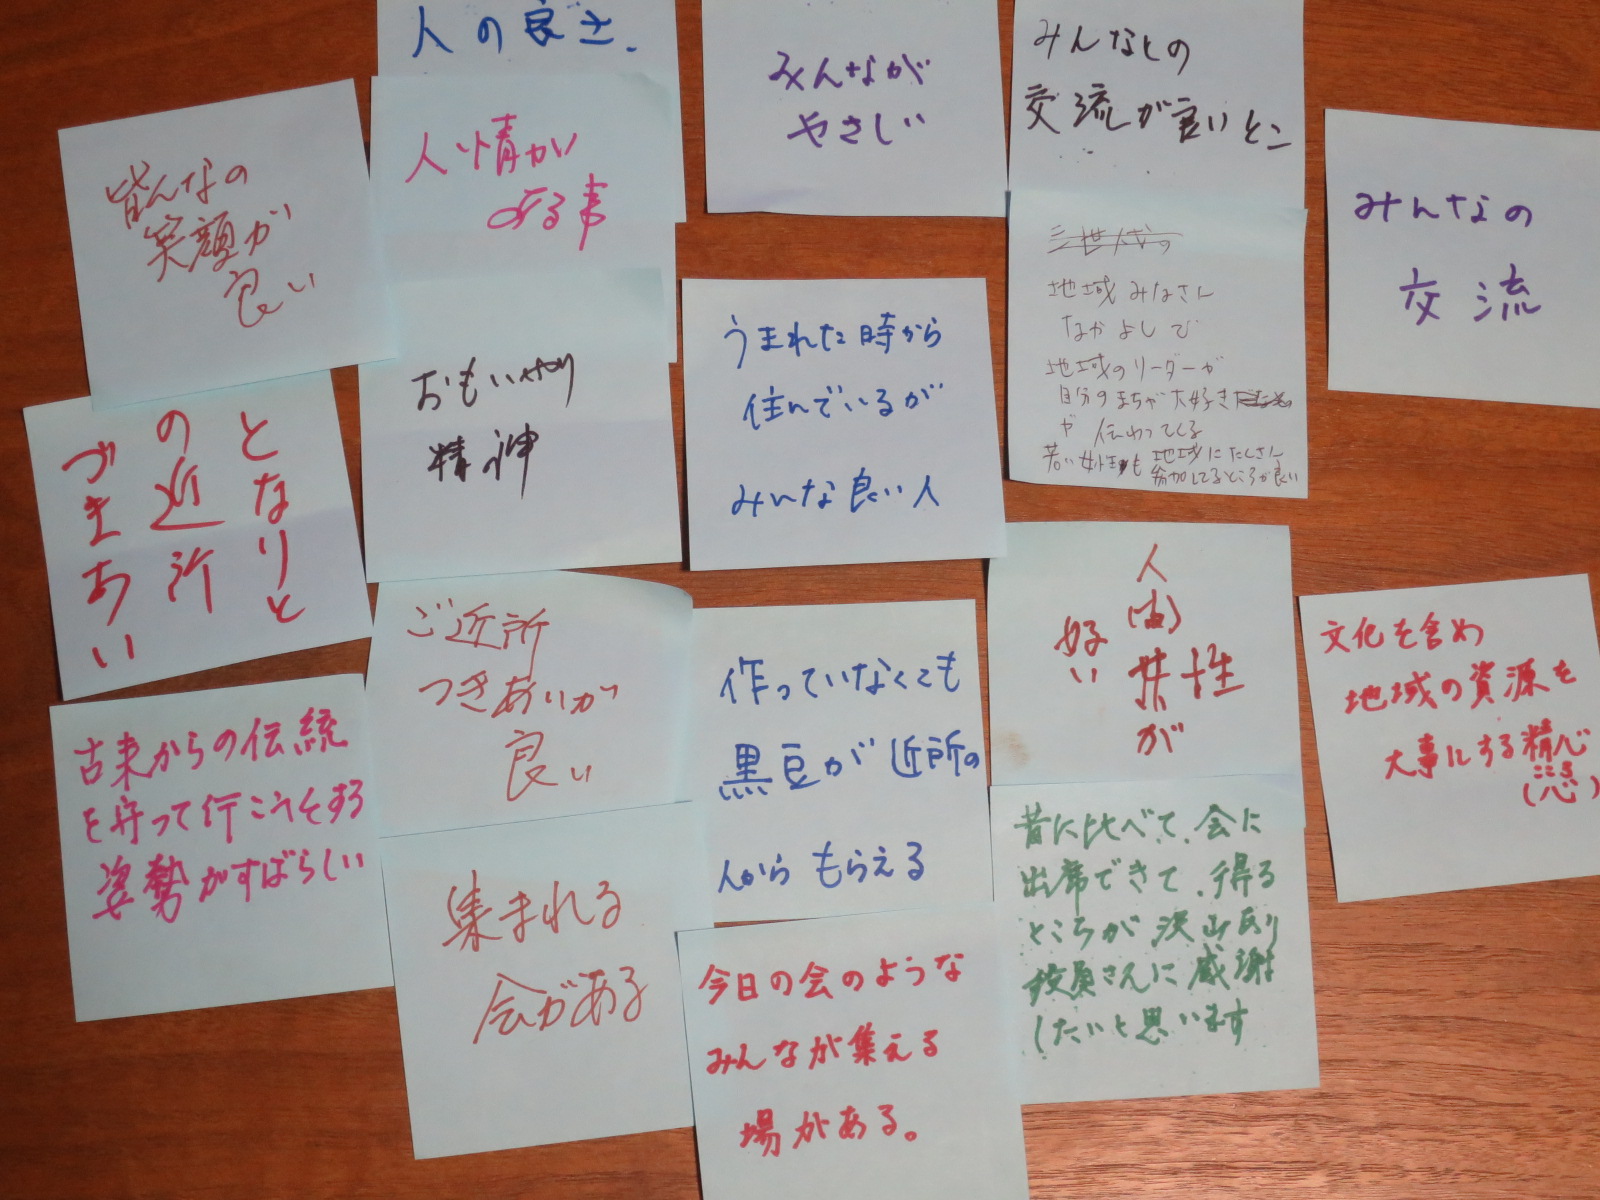 人の良さ.
人情が
ある事
みんなが
やさしい
みんなとの
交流が良いとこ
皆んなの
笑顔が
良い
みんなの
交流
おもいやり
精神
うまれた時から
住んでいるが
みんな良い人
三世代の
地域みなさん
なかよしで
地域のリーダーが
自分のまちが大好き
が 伝わってくる
若い女性も地域にたくさん
参加してるところが良い
となりと
の近所
づきあい
ご近所
つきあいが
良い
作っていなくても
黒豆が近所の
人からもらえる
人(間)性
共
が
好い
文化を含め
地域の資源を
大事にする精心
(こころ)
古来からの伝統
を守って行こうとする
姿勢がすばらしい
集まれる
会がある
今日の会のような
みんなが集える
場がある。
昔に比べて、会に
出席できて、得る
ところが沢山有り
役員さんに感謝
したいと思います